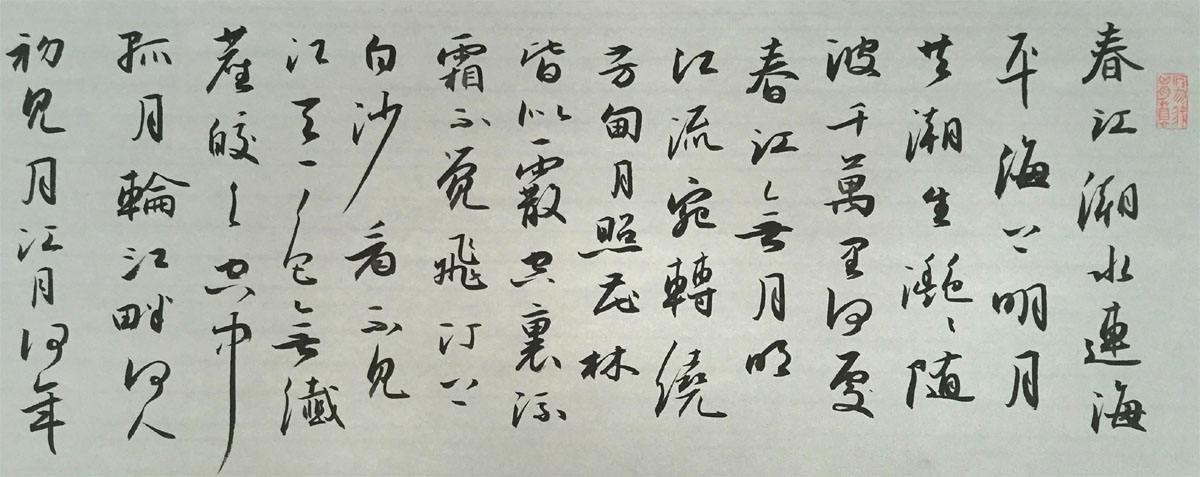 春江潮水連海
平海上明月
共潮生灧〻随
波千萬里何處
春江無月明
江流宛轉繞
芳甸月照花林
皆似霰空裏流
霜不覺飛汀上
白沙看不見
江天一色無纖
塵皎〻空中
孤月輪江畔何人
初見月江月何年